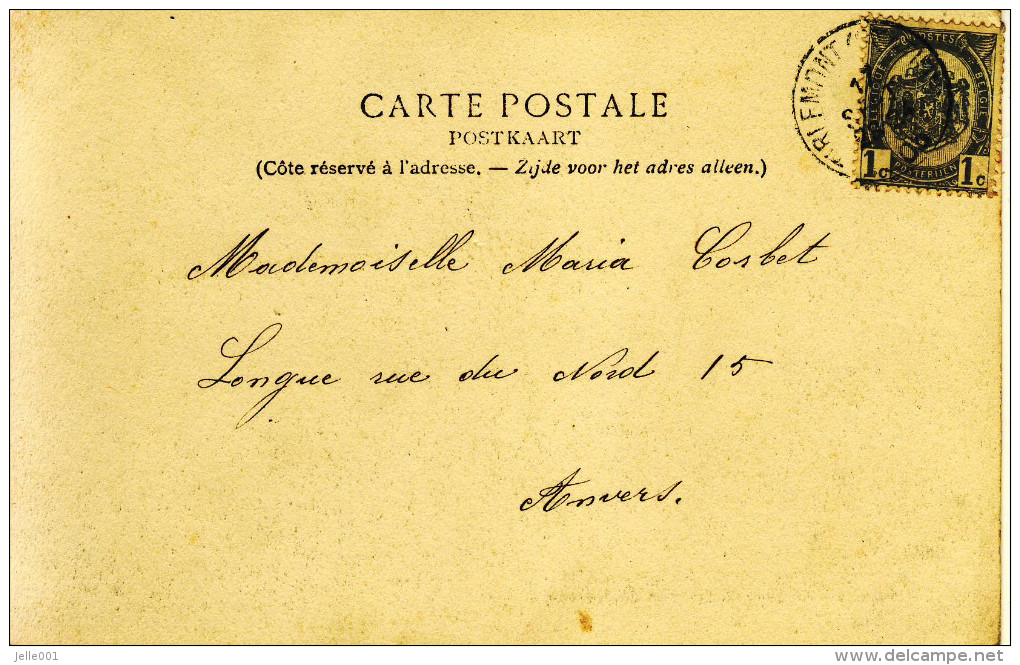 CARTE POSTALE
POSTKAART
(Côte réservé à l'adresse. — Zijde voor het adres alleen.)
TIRLEMONT
POSTES
BELGIQUE
BELGIË
POSTERIJEN
1c 1c
Mademoiselle Maria Corbet
Longue rue du Nord 15
Anvers.
jelle001
delcampe.net